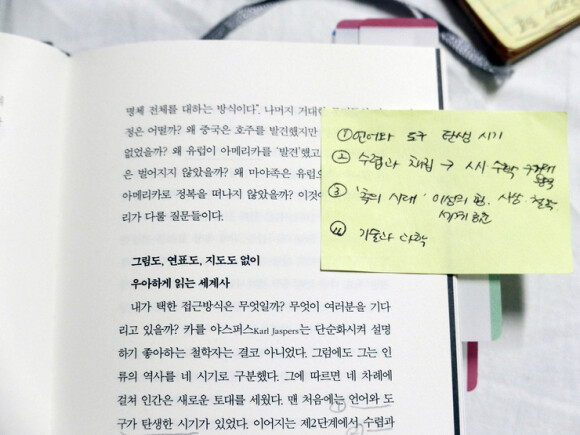 명체 전체를 대하는 방식이다". 나머지 거대한
정은 어떨까? 왜 중국은 호주를 발견했지만
없었을까? 왜 유럽이 아메리카를 '발견'했고
은 벌어지지 않았을까? 왜 마야족은 유럽으
아메리카로 정복을 떠나지 않았을까? 이것이
리가 다룰 질문들이다.
① 언어와 도구 탄생 시기
② 수렵과 채집 →
③ '축의 시대' 이상의 사상 철학
④ 기술과 과학
그림도, 연표도, 지도도 없이
우아하게 읽는 세계사
내가 택한 접근방식은 무엇일까? 무엇이 여러분을 기다
리고 있을까? 카를 야스퍼스Karl Jaspers는 단순화시켜 설명
하기 좋아하는 철학자는 결코 아니었다. 그럼에도 그는 인
류의 역사를 네 시기로 구분했다. 그에 따르면 네 차례에
걸쳐 인간은 새로운 토대를 세웠다. 맨 처음에는 언어와 도
구가 탄생한 시기가 있었다. 이어지는 제2단계에서 수렵과